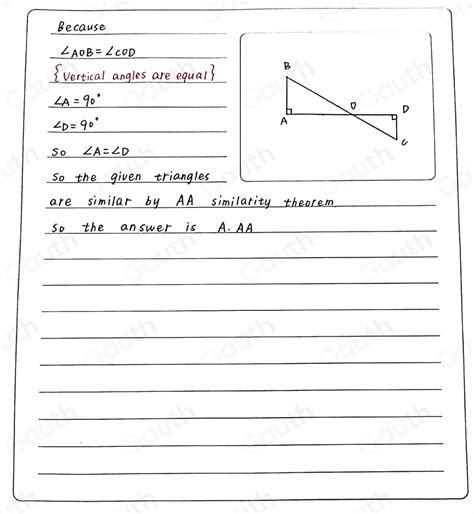 Because
∠AOB=∠COD
{Vertical angles are equal}
∠A=90°
∠D=90°
So ∠A=∠D
So the given triangles
are similar by AA similarity theorem
So the answer is A. AA
B
O
D
A
C
Gauth